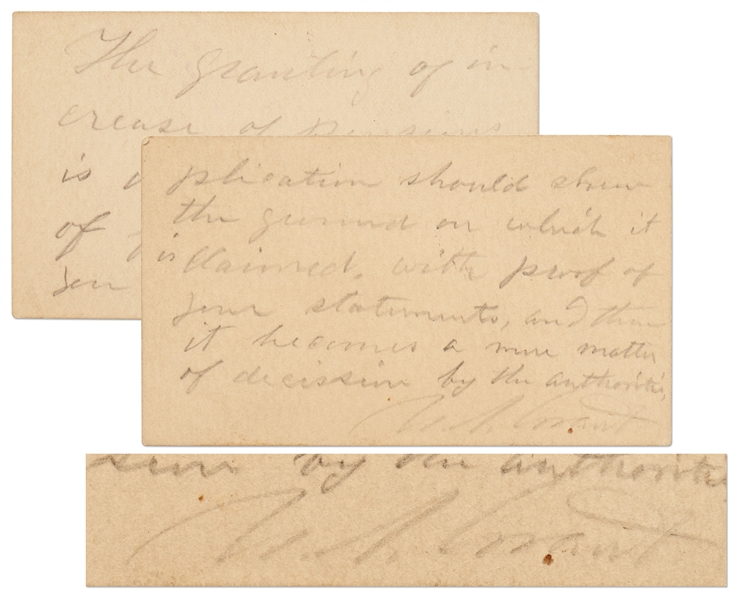 The granting of in-
crease of Pensions
is
of
plication should show
the ground on which it
is claimed, with proof of
your statements, and then
it becomes a mere matter
of decission by the authoritie,
U. S. Grant
by the authoritie
U. S. Grant